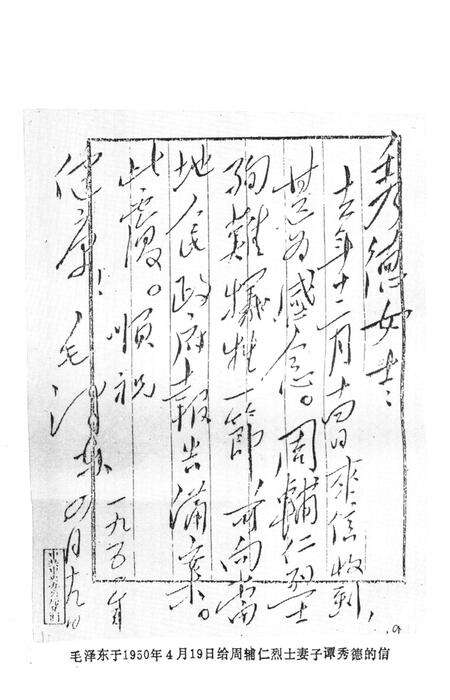 秀德女士：
去年十二月十四日來信收到，
甚为感念。周輔仁烈士
殉難犧牲一節，可向當
地人民政府報告備案。
此覆。順祝
健康！毛澤東 四月十九日
一九五〇年
毛泽东于1950年4月19日给周辅仁烈士妻子谭秀德的信